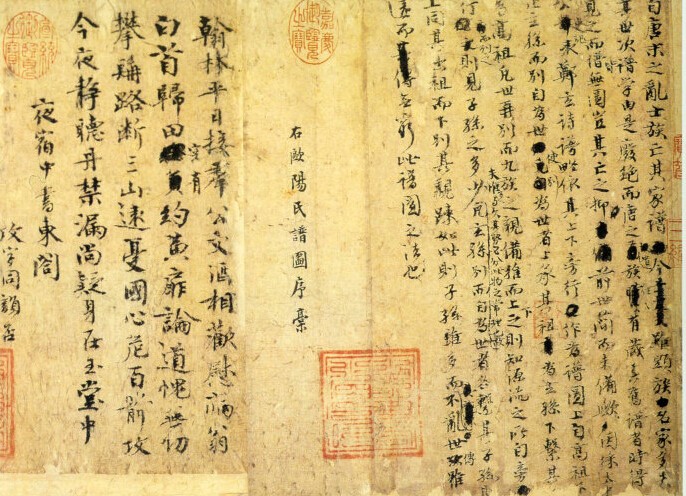 自唐末之亂士族亡其家譜今雖顯族名家多失
其世次譜學由是廢絕而唐之遺族有藏其舊譜者時得
見之而譜無圖豈其亡之抑前世簡而未備歟因採太
表鄭玄詩譜略依其上下旁行作為譜圖上自高祖
止玄孫而別自為世使別為世者上承其祖為玄孫下繫其
為高祖凡世再別而九族之親備推而上下之則知源流之所自旁
行而列之則見子孫之多少凡玄孫別而自為世者各繫其子孫其
上同其出祖而下別其親疏如此則子孫雖多而不亂世傳雖
遠而無窮此譜圖之法也
右歐陽氏譜圖序藁
翰林平日接羣公文酒相歡慰病翁
白首歸田空有約黃扉論道愧無功
攀髯路斷三山遠憂國心危百箭攻
今夜靜聽丹禁漏尚疑身在玉堂中
夜宿中書東閣
嘉慶御覽之寶
宣統御覽之寶